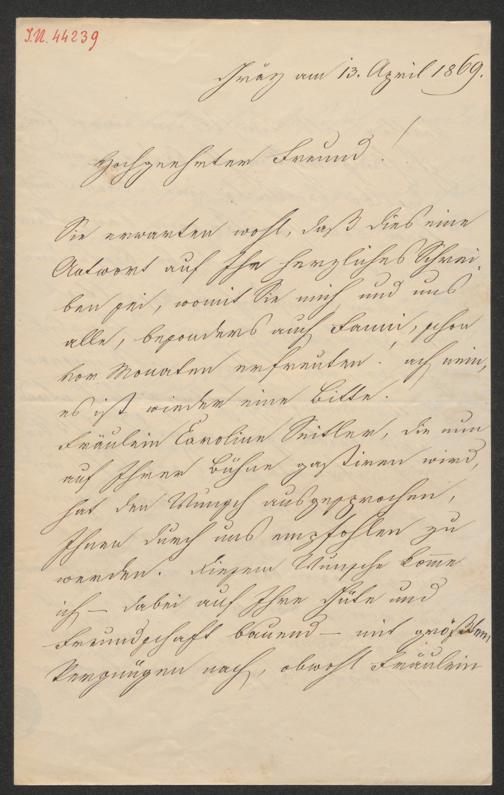 I.N. 44239
Gräz am 13. April 1869.
Hochgeehrter Freund!
Sie erwarten wohl, daß dies eine
Antwort auf Ihr herzliches Schrei-
ben sei, womit Sie mich und uns
alle, besonders auch Fanni, schon
vor Monaten erfreuten! ach nein,
es ist wieder eine Bitte.
Fräulein Caroline Seitler, die nun
auf Ihrer Bühne gastiren wird,
hat den Wunsch ausgesprochen,
Ihnen durch uns empfohlen zu
werden. Diesem Wunsche kom̄e
ich – dabei auf Ihre Güte und
Freundschaft bauend – mit größtem
Vergnügen nach, obwohl Fräulein